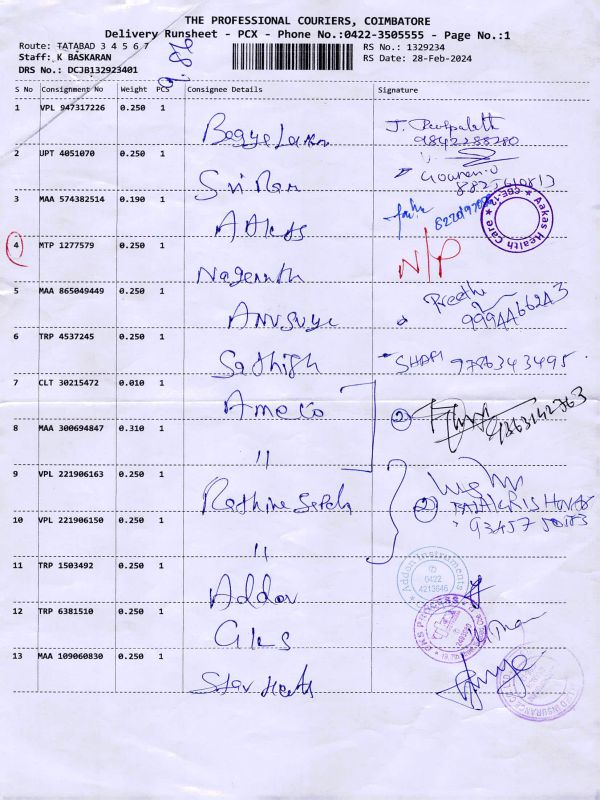 THE PROFESSIONAL COURIERS, COIMBATORE
Delivery Runsheet - PCX - Phone No.:0422-3505555 - Page No.:1
Route: TATABAD 3 4 5 6 7
RS No.: 1329234
Staff: K BASKARAN
RS Date: 28-Feb-2024
DRS No.: DCJB132923401
S No Consignment No Weight PCS Consignee Details Signature
1 VPL 947317226 0.250 1
9842288280
2 UPT 4051070 0.250 1 Sri Ram
3 MAA 574382514 0.190 1
Aakas Health Care ★ CBE-12 ★
4 MTP 1277579 0.250 1 Nagenath N/P
5 MAA 865049449 0.250 1 Anusuya Preethi
9994466243
6 TRP 4537245 0.250 1 Sathish 9786343495
7 CLT 30215472 0.010 1 Ameco
8 MAA 300694847 0.310 1 " 2 9363142763
9 VPL 221906163 0.250 1
10 VPL 221906150 0.250 1 " 2
11 TRP 1503492 0.250 1 Addon
Addon Instruments
0422
4213646
12 TRP 6381510 0.250 1
13 MAA 109060830 0.250 1 Star Heath